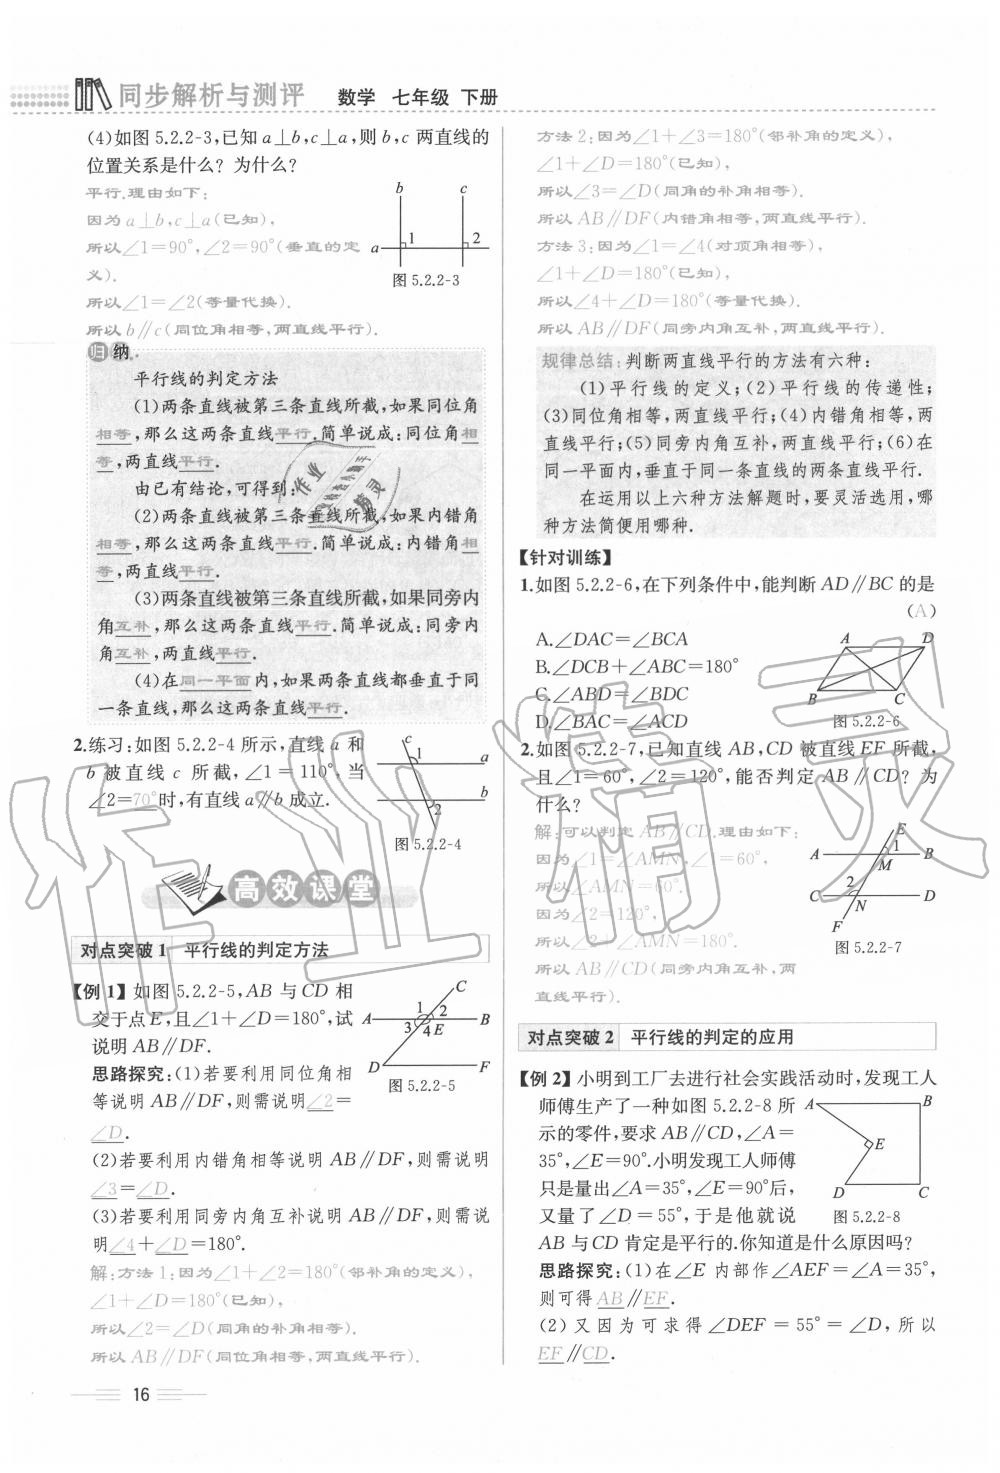 同步解析与测评 数学 七年级 下册
(4)如图 5.2.2-3,已知 a⊥b,c⊥a,则 b,c 两直线的
位置关系是什么? 为什么?
平行.理由如下:
因为 a⊥b,c⊥a(已知),
所以∠1=90°,∠2=90°(垂直的定
义).
所以∠1=∠2(等量代换).
所以 b∥c(同位角相等,两直线平行).
b c
a 1 2
图 5.2.2-3
归纳
平行线的判定方法
(1)两条直线被第三条直线所截,如果同位角
相等,那么这两条直线平行.简单说成:同位角相
等,两直线平行.
由已有结论,可得到:
(2)两条直线被第三条直线所截,如果内错角
相等,那么这两条直线平行.简单说成:内错角相
等,两直线平行.
(3)两条直线被第三条直线所截,如果同旁内
角互补,那么这两条直线平行.简单说成:同旁内
角互补,两直线平行.
(4)在同一平面内,如果两条直线都垂直于同
一条直线,那么这两条直线平行.
2.练习:如图 5.2.2-4 所示,直线 a 和
b 被直线 c 所截,∠1=110°,当
∠2=70°时,有直线 a∥b 成立.
c
1 a
b
2
图 5.2.2-4
高效课堂
对点突破 1 平行线的判定方法
【例 1】如图 5.2.2-5,AB 与 CD 相
交于点 E,且∠1+∠D=180°,试
说明 AB∥DF.
C
1 2
A B
3 4 E
D F
图 5.2.2-5
思路探究:(1)若要利用同位角相
等说明 AB∥DF,则需说明∠2=
∠D.
(2)若要利用内错角相等说明 AB∥DF,则需说明
∠3=∠D.
(3)若要利用同旁内角互补说明 AB∥DF,则需说
明∠4+∠D=180°.
解:方法 1:因为∠1+∠2=180°(邻补角的定义),
∠1+∠D=180°(已知),
所以∠2=∠D(同角的补角相等).
所以 AB∥DF(同位角相等,两直线平行).
16
方法 2:因为∠1+∠3=180°(邻补角的定义),
∠1+∠D=180°(已知),
所以∠3=∠D(同角的补角相等).
所以 AB∥DF(内错角相等,两直线平行).
方法 3:因为∠1=∠4(对顶角相等),
∠1+∠D=180°(已知),
所以∠4+∠D=180°(等量代换).
所以 AB∥DF(同旁内角互补,两直线平行).
规律总结:判断两直线平行的方法有六种:
(1)平行线的定义;(2)平行线的传递性;
(3)同位角相等,两直线平行;(4)内错角相等,两
直线平行;(5)同旁内角互补,两直线平行;(6)在
同一平面内,垂直于同一条直线的两条直线平行.
在运用以上六种方法解题时,要灵活选用,哪
种方法简便用哪种.
【针对训练】
1.如图 5.2.2-6,在下列条件中,能判断 AD∥BC 的是
(A)
A.∠DAC=∠BCA
B.∠DCB+∠ABC=180°
C.∠ABD=∠BDC
D.∠BAC=∠ACD
A D
B C
图 5.2.2-6
2.如图 5.2.2-7,已知直线 AB,CD 被直线 EF 所截,
且∠1=60°,∠2=120°,能否判定 AB∥CD? 为
什么?
解:可以判定 AB∥CD.理由如下:
因为∠1=∠AMN,∠1=60°,
所以∠AMN=60°.
因为∠2=120°,
所以∠2+∠AMN=180°.
所以 AB∥CD(同旁内角互补,两
直线平行).
E
A 1 B
M
2
C N D
F
图 5.2.2-7
对点突破 2 平行线的判定的应用
【例 2】小明到工厂去进行社会实践活动时,发现工人
师傅生产了一种如图 5.2.2-8 所
示的零件,要求 AB∥CD,∠A=
35°,∠E=90°.小明发现工人师傅
只是量出∠A=35°,∠E=90°后,
又量了∠D=55°,于是他就说
AB 与 CD 肯定是平行的.你知道是什么原因吗?
A B
E
D C
图 5.2.2-8
思路探究:(1)在∠E 内部作∠AEF=∠A=35°,
则可得 AB∥EF.
(2)又因为可求得∠DEF=55°=∠D,所以
EF∥CD.
作业精灵